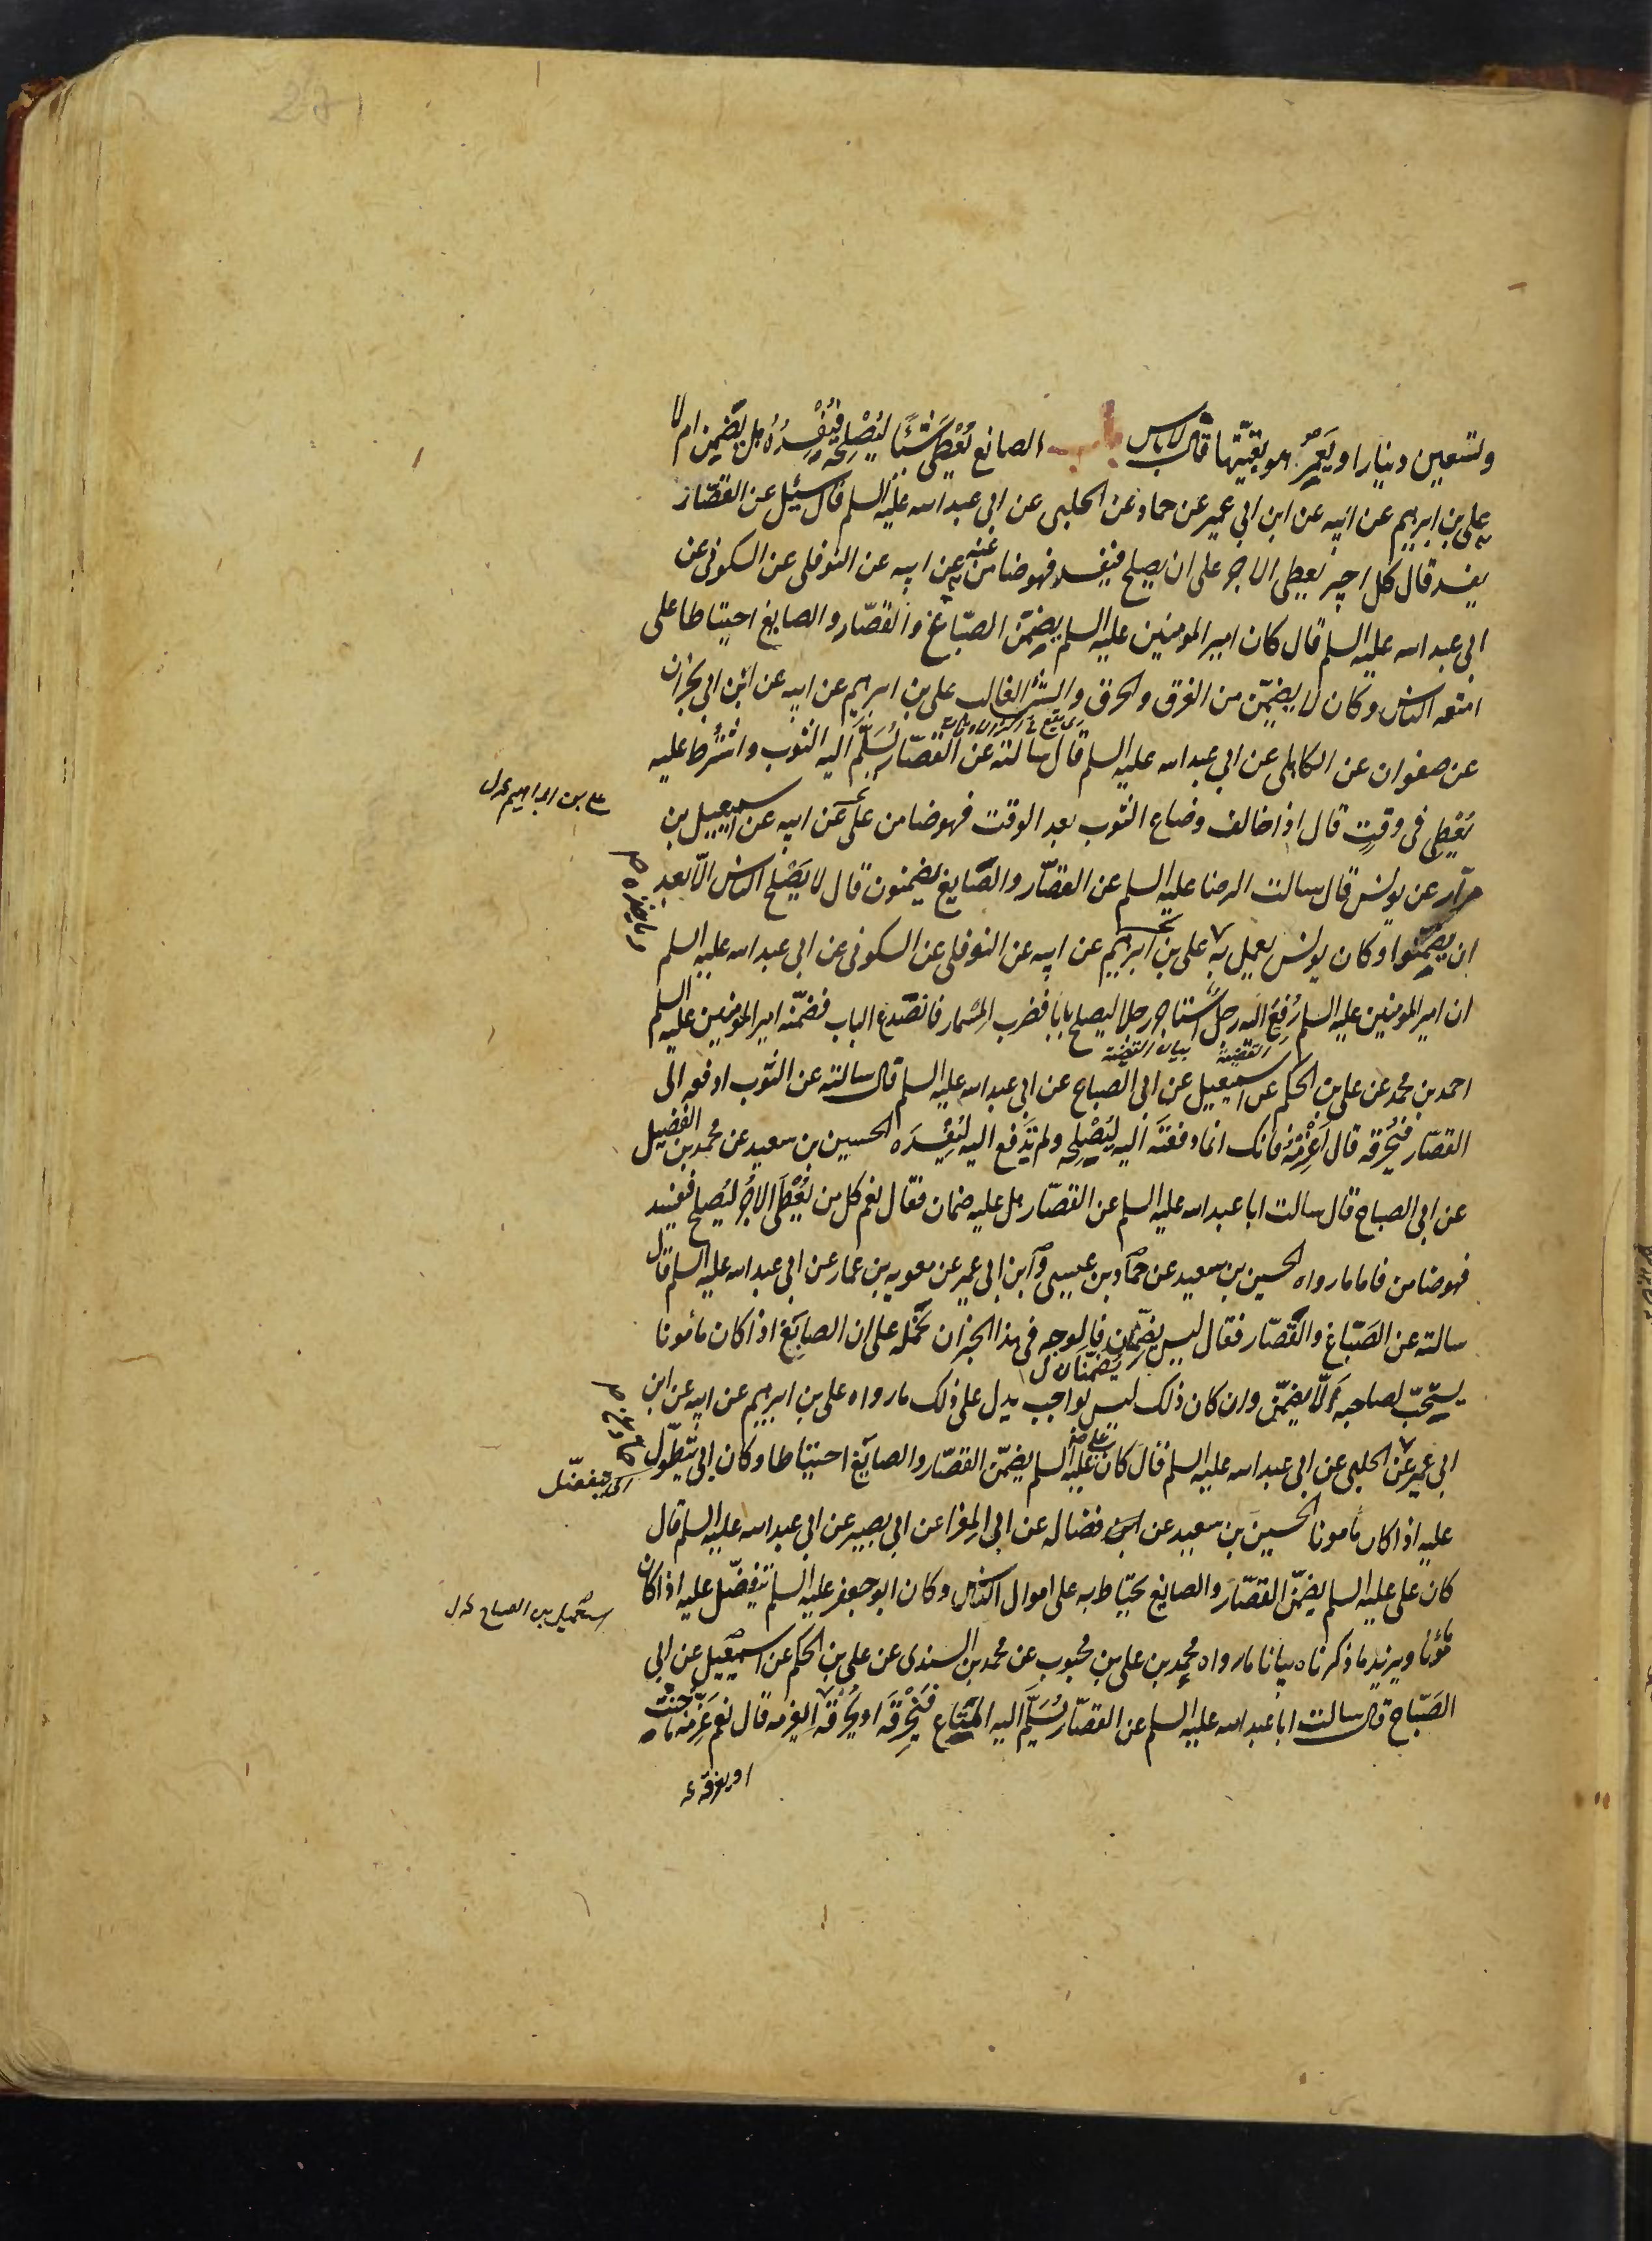 وتسعين دينارا او يعمر هو بقيتها قال لا باس باب الصانع يعطى شيئا ليصلحه فيفسده هل يضمن ام لا
علي بن ابرهيم عن ابيه عن ابن ابي عمير عن حماد عن الحلبي عن ابي عبد الله عليه السلم قال سئل عن القصار
يفسد قال كل اجير يعطى الاجر على ان يصلح فيفسد فهو ضامن عنه عن ابيه عن النوفلي عن السكوني عن
ابي عبد الله عليه السلم قال كان امير المومنين عليه السلم يضمن الصباغ والقصار والصايغ احتياطا على
امتعه الناس وكان لا يضمن من الغرق والحرق والشئ الغالب علي بن ابرهيم عن ابيه عن ابن ابي نجران
عن صفوان عن الكاهلي عن ابي عبد الله عليه السلم قال سالته عن القصار يسلم اليه الثوب واشترط عليه
يعطى في وقت قال اذا خالف وضاع الثوب بعد الوقت فهو ضامن علي عن ابيه عن اسمعيل بن
علي بن ابراهيم
مرار عن يونس قال سالت الرضا عليه السلم عن القصار والصايغ يضمنون قال لا يصلح الناس الا بعد
ان يضمنوا وكان يونس يعمل به علي بن ابرهيم عن ابيه عن النوفلي عن السكوني عن ابي عبد الله عليه السلم
ان امير المومنين عليه السلم رفع اليه رجل استاجر رجلا ليصلح بابا فضرب المسمار فانصدع الباب فضمنه امير المومنين عليه السلم
احمد بن محمد عن علي بن الحكم عن اسمعيل عن ابي الصباح عن ابي عبد الله عليه السلم قال سالته عن الثوب ادفعه الى
القصار فيحرقه قال اغرمه فانك انما دفعته اليه ليصلحه ولم تدفع اليه ليفسده الحسين بن سعيد عن محمد بن الفضيل
عن ابي الصباح قال سالت ابا عبد الله عليه السلم عن القصار هل عليه ضمان فقال نعم كل من يعطى الاجر ليصلح فيفسد
فهو ضامن فاما ما رواه الحسين بن سعيد عن حماد بن عيسى وابن ابي عمير عن معويه بن عمار عن ابي عبد الله عليه السلم قال
سالته عن الصباغ والقصار فقال ليس يضمنان فالوجه في هذا الخبر ان نحمله على ان الصايغ اذا كان مامونا
يضمنان
يستحب لصاحبه الا يضمن وان كان ذلك ليس بواجب يدل على ذلك ما رواه علي بن ابرهيم عن ابيه عن ابن
ابي عمير عن الحلبي عن ابي عبد الله عليه السلم قال كان علي عليه السلم يضمن القصار والصايغ احتياطا وكان ابي يتطول
اي يتفضل
عليه اذا كان مامونا الحسين بن سعيد عن ابن فضاله عن ابي المغرا عن ابي بصير عن ابي عبد الله عليه السلم قال
كان علي عليه السلم يضمن القصار والصايغ يحتاط به على اموال الناس وكان ابو جعفر عليه السلم يتفضل عليه اذا كان
اسمعيل بن الصباح
مامونا ويزيد ما ذكرناه بيانا ما رواه محمد بن علي بن محبوب عن محمد بن السندى عن علي بن الحكم عن اسمعيل عن ابي
الصباح قال سالت ابا عبد الله عليه السلم عن القصار يسلم اليه المتاع فيخرقه او يحرقه ايغرمه قال نعم غرمه ما جنت